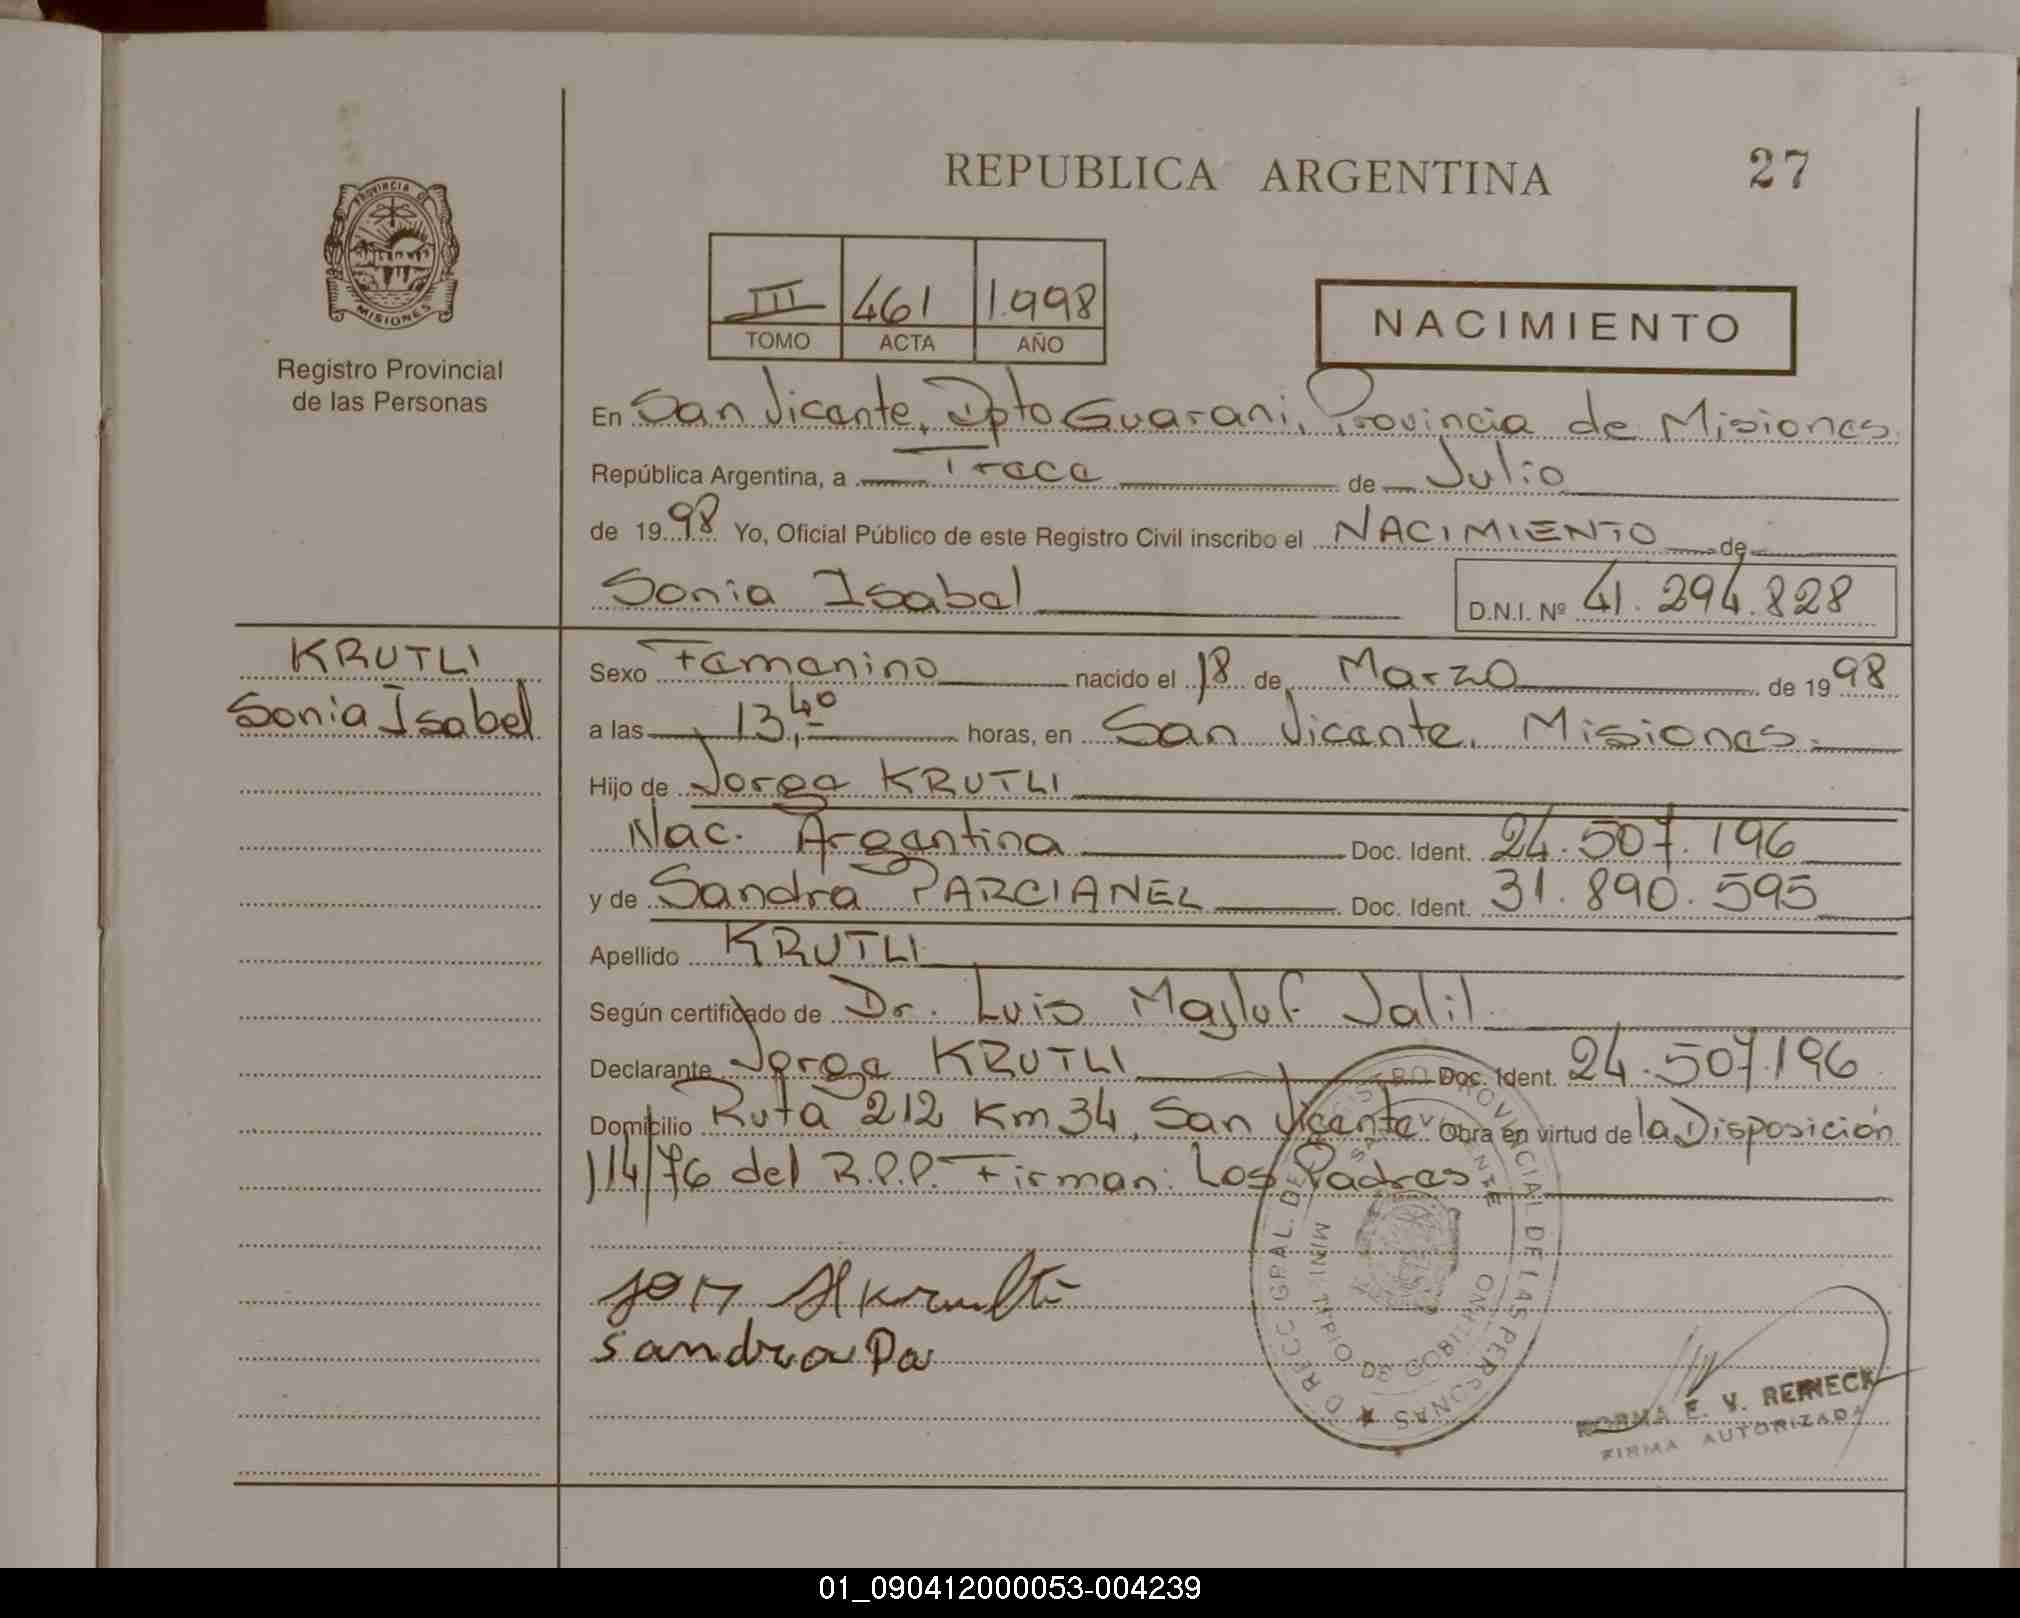 REPUBLICA ARGENTINA
27
PROVINCIA D
MISIONES
Registro Provincial
de las Personas
III 461 1.998
TOMO ACTA AÑO
NACIMIENTO
En San Vicente, Dpto Guarani, Provincia de Misiones.
República Argentina, a Trece de Julio
de 1998 Yo, Oficial Público de este Registro Civil inscribo el NACIMIENTO de
Sonia Isabel D.N.I. Nº 41.294.828
KRUTLI
Sonia Isabel
Sexo Femenino nacido el 18 de Marzo de 1998
a las 13,40 horas, en San Vicente, Misiones.
Hijo de Jorge KRUTLI
Nac. Argentina Doc. Ident. 24.507.196
y de Sandra PARCIANEL Doc. Ident. 31.890.595
Apellido KRUTLI
Según certificado de Dr. Luis Majluf Jalil
Declarante Jorge KRUTLI Doc. Ident. 24.507.196
Domicilio Ruta 212 Km 34, San Vicente Obra en virtud de la Disposición
114/76 del R.P.P. Firman: Los Padres
Sandra Pa
E. V. REINECK
FIRMA AUTORIZADA
01_090412000053-004239